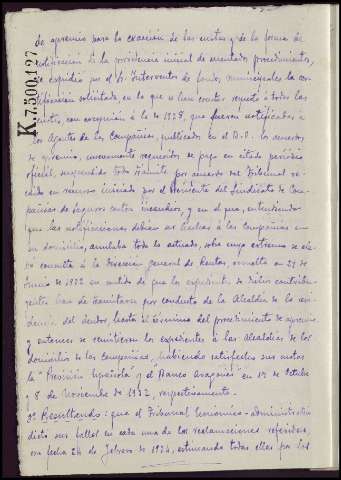 K.7.500.127
de apremio para la exacción de las cuotas y de la forma de
notificación de la providencia inicial de mentados procedimientos,
se expidió por el Sr. Interventor de fondos municipales la cer-
tificación solicitada, en la que se hace constar respecto a todas las
cuotas, con excepción a la de 1928, que fueron notificadas a
los Agentes de las Compañías, publicados en el B.O. los acuerdos
de apremio, nuevamente requeridos de pago en citado periódico
oficial, suspendido todo trámite por acuerdo del Tribunal re-
caído en recurso iniciado por el Presidente del Sindicato de Com-
pañías de Seguros contra incendios, y en el que, entendiendo
que las notificaciones debían ser hechas a las Compañías en
su domicilio, anulaba todo lo actuado, sobre cuyo extremo se ele-
vó consulta a la Dirección general de Rentas, resuelta en 27 de
Junio de 1932 en sentido de que los expedientes de dichos contribu-
yentes han de tramitarse por conducto de la Alcaldía de la resi-
dencia del deudor, hasta el término del procedimiento de apremio,
y entonces se remitieron los expedientes a las Alcaldías de los
domicilios de las Compañías, habiendo satisfecho sus cuotas
la "Previsión Española" y el Banco Aragonés en 17 de Octubre
y 8 de Noviembre de 1932, respectivamente.
3º Resultando: que el Tribunal económico-administrativo
dictó sus fallos en cada una de las reclamaciones referidas,
con fecha 24 de Febrero de 1934, estimando todas ellas por los